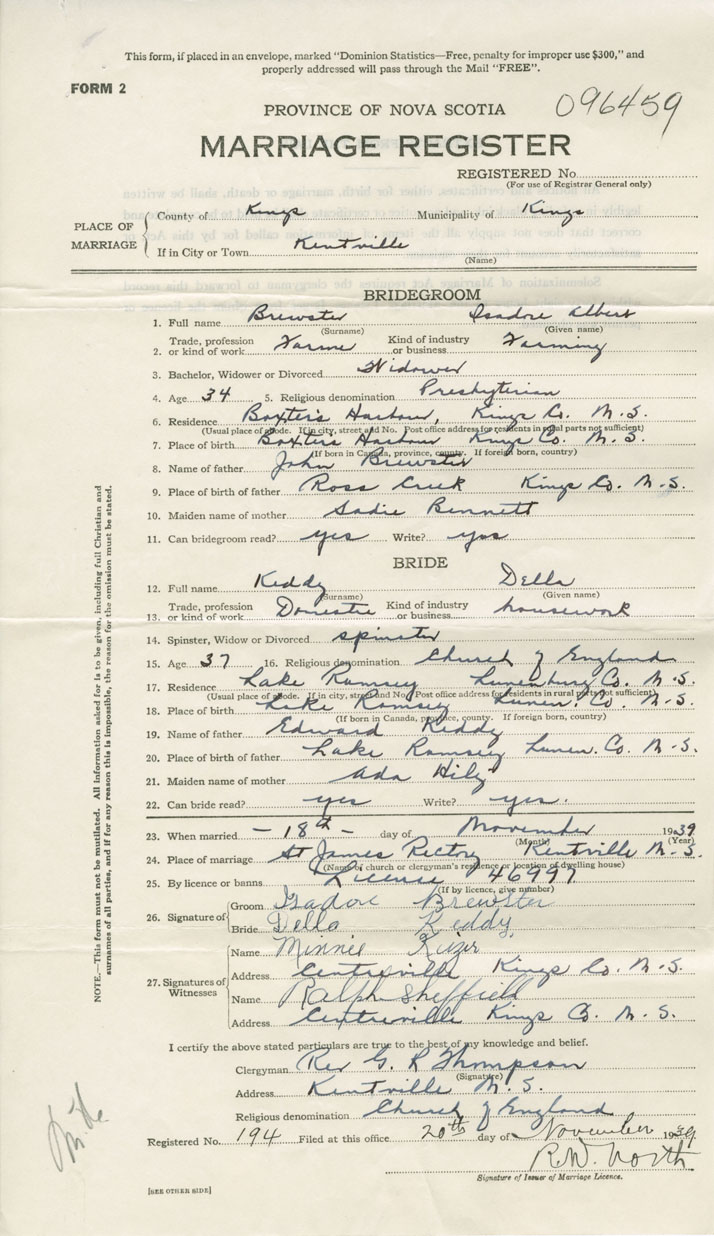 This form, if placed in an envelope, marked "Dominion Statistics—Free, penalty for improper use $300," and
properly addressed will pass through the Mail "FREE".
FORM 2
096459
PROVINCE OF NOVA SCOTIA
MARRIAGE REGISTER
REGISTERED No.
(For use of Registrar General only)
PLACE OF MARRIAGE
County of Kings Municipality of Kings
If in City or Town Kentville
(Name)
BRIDEGROOM
1. Full name Brewster Isadore Albert
(Surname) (Given name)
2. Trade, profession or kind of work Farmer Kind of industry or business Farming
3. Bachelor, Widower or Divorced Widower
4. Age 34 5. Religious denomination Presbyterian
6. Residence Baxters Harbour, Kings Co. N.S.
(Usual place of abode. If in city, street and No. Post office address for residents in rural parts not sufficient)
7. Place of birth Baxters Harbour Kings Co. N.S.
(If born in Canada, province, county. If foreign born, country)
8. Name of father John Brewster
9. Place of birth of father Ross Creek Kings Co. N.S.
10. Maiden name of mother Sadie Bennett
11. Can bridegroom read? yes Write? yes
BRIDE
12. Full name Keddy Della
(Surname) (Given name)
13. Trade, profession or kind of work Domestic Kind of industry or business housework
14. Spinster, Widow or Divorced spinster
15. Age 37 16. Religious denomination Church of England
17. Residence Lake Ramsey Lunenburg Co. N.S.
(Usual place of abode. If in city, street and No. Post office address for residents in rural parts not sufficient)
18. Place of birth Lake Ramsey Lunen. Co. N.S.
(If born in Canada, province, county. If foreign born, country)
19. Name of father Edward Keddy
20. Place of birth of father Lake Ramsey Lunen. Co. N.S.
21. Maiden name of mother Ada
22. Can bride read? yes Write? yes.
23. When married — 18th — day of November 1939
(Month) (Year)
24. Place of marriage St James Rectory Kentville N.S.
(Name of church or clergyman's residence or location of dwelling house)
25. By licence or banns Licence 46997
(If by licence, give number)
26. Signature of
Groom Isadore Brewster
Bride Della Keddy
27. Signatures of Witnesses
Name Minnie
Address Centreville Kings Co. N.S.
Name Ralph Sheffield
Address Centreville Kings Co. N.S.
I certify the above stated particulars are true to the best of my knowledge and belief.
Clergyman Rev G. R Thompson
(Signature)
Address Kentville N.S.
Religious denomination Church of England
Registered No. 194 Filed at this office 20th day of November 1939
R.W. North
Signature of Issuer of Marriage Licence.
[SEE OTHER SIDE]
NOTE.—This form must not be mutilated. All information asked for is to be given, including full Christian and
surnames of all parties, and if for any reason this is impossible, the reason for the omission must be stated.